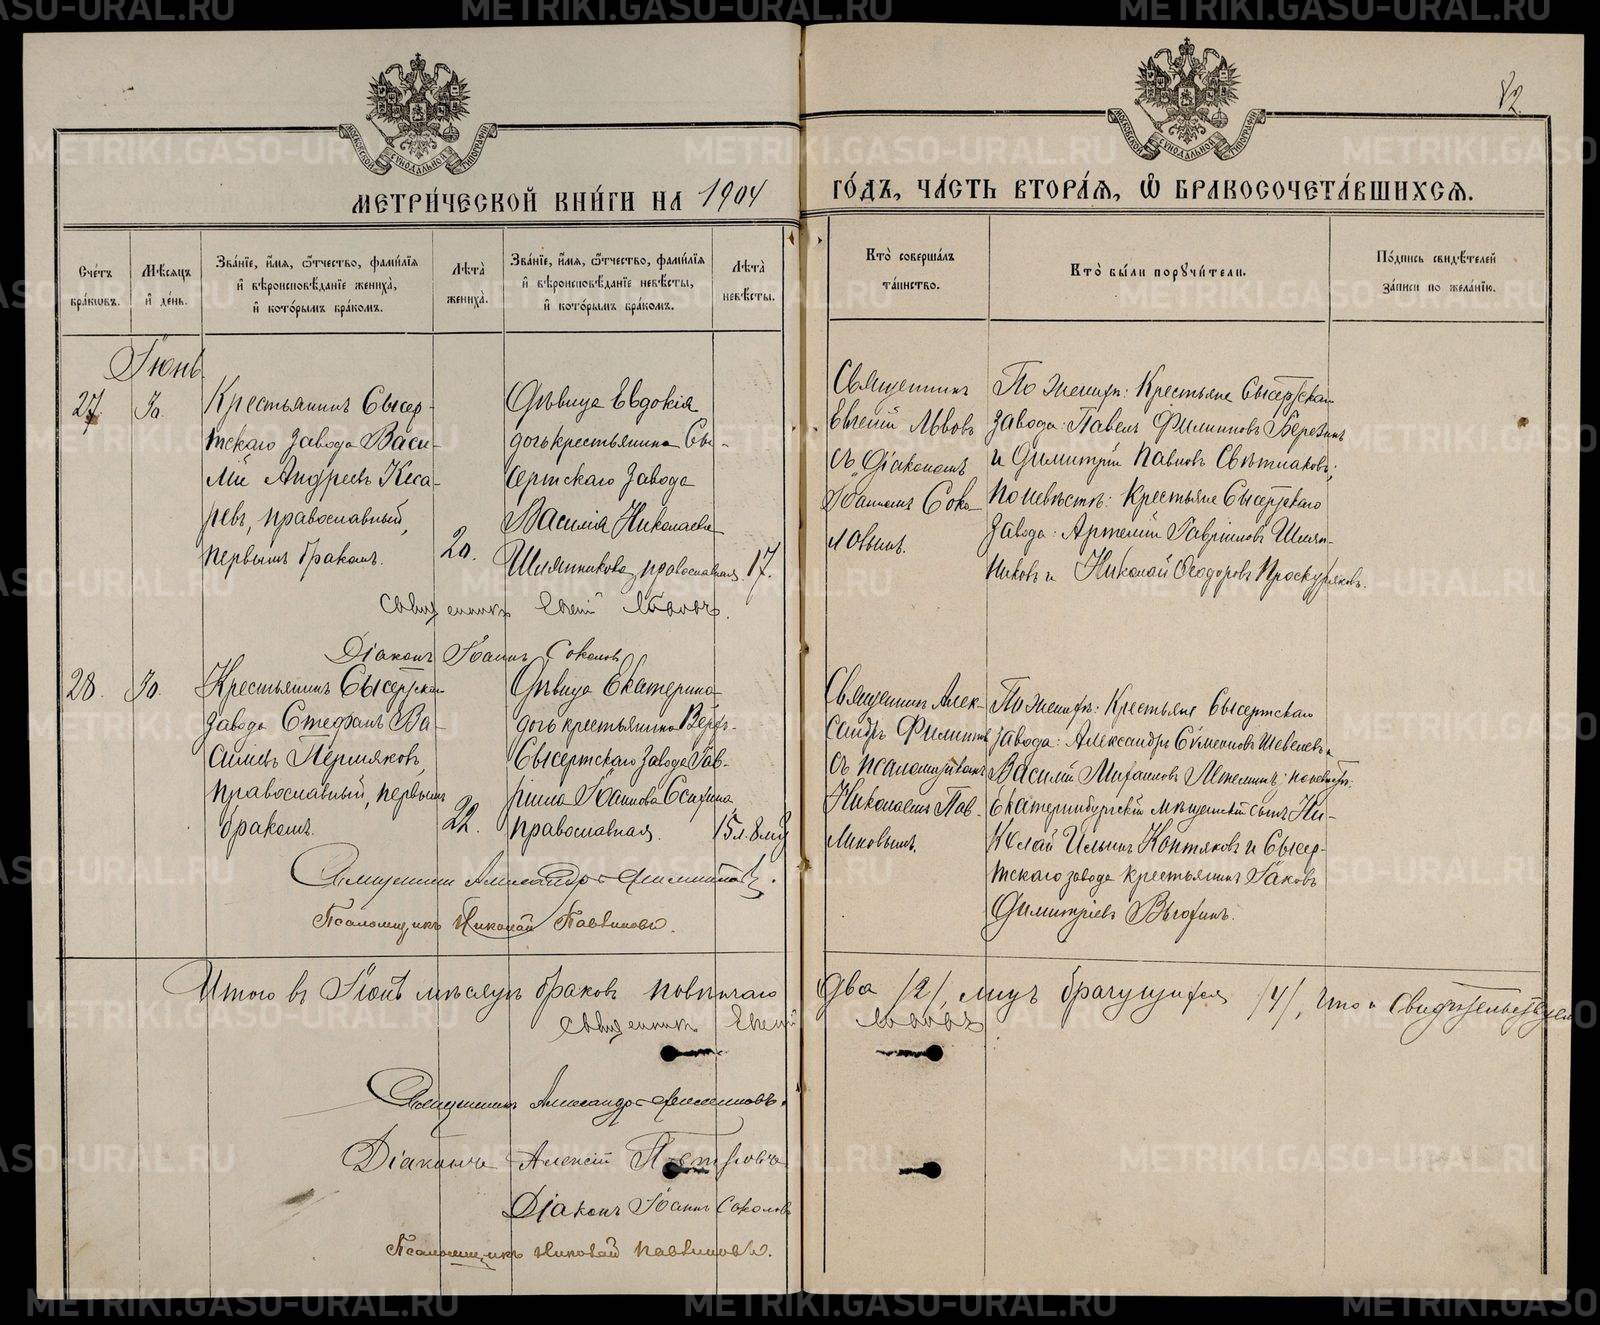 METRIKI.GASO-URAL.RU
82
МОСКОВСКОЙ СѴНОДАЛЬНОЙ ТИПОГРАФІИ
МОСКОВСКОЙ СѴНОДАЛЬНОЙ ТИПОГРАФІИ
МЕТРИ́ЧЕСКОЙ КНИ́ГИ НА 1904 ГО́ДЪ, ЧА́СТЬ ВТОРА́Я, Ѡ҆ БРАКОСОЧЕТА́ВШИХСЯ.
Сче́тъ бра́ковъ.
Мѣ́сяцъ и҆ де́нь.
Зва́нїе, и҆́мя, ѻ҆́тчество, фами́лїя и҆ вѣроисповѣ́данїе жениха̀, и҆ кото́рымъ бра́комъ.
Лѣ́та жениха̀.
Зва́нїе, и҆́мя, ѻ҆́тчество, фами́лїя и҆ вѣроисповѣ́данїе невѣ́сты, и҆ кото́рымъ бра́комъ.
Лѣ́та невѣ́сты.
Кто̀ соверша́лъ та́инство.
Кто̀ бы́ли поручи́тели.
По́дпись свидѣ́телей за́писи по жела́нїю.
Іюнь.
27
Крестьянинъ Сысер-
тскаго завода Васи-
лій Андреевъ Кеса-
ревъ, православный,
первымъ бракомъ.
20.
Дѣвица Евдокія
дочь крестьянина Сы-
сертскаго завода
Василія Николаева
Шляпникова, православная.
17.
Священникъ
Евгеній Львовъ
съ Діакономъ
Іоанномъ Соко-
ловымъ.
По женихѣ: Крестьяне Сысертскаго
завода: Павелъ Филиповъ Березинъ
и Димитрій Павловъ Свѣтлаковъ;
по невѣстѣ: Крестьяне Сысертскаго
завода: Артемій Гавріиловъ Шляп-
никовъ и Николай Ѳеодоровъ Проскуряковъ.
Священникъ Евгеній Львовъ.
Діаконъ Іоаннъ Соколовъ
28.
Крестьянинъ Сысертскаго
завода Стефанъ Ва-
сильевъ Пермяковъ,
православный, первымъ
бракомъ.
22.
Дѣвица Екатерина
дочь крестьянина Верхъ-
Сысертскаго завода Гав-
ріила Іоаннова Осипова
православная.
15 л. 8 м.
Священникъ Алек-
сандръ Филипповъ
съ псаломщикомъ
Николаемъ Пав-
линовымъ.
По женихѣ: Крестьяне Сысертскаго
завода: Александръ Сѵмеоновъ Шевелевъ и
Василій Михаиловъ Летеминъ; по невѣстѣ:
Екатеринбургскій мѣщанскій сынъ Ни-
колай Ильинъ Коптяковъ и Сысер-
тскаго завода крестьянинъ Іаковъ
Димитріевъ
Священникъ Александръ Филипповъ.
Псаломщикъ Николай Павлиновъ.
Итого въ Іюнѣ мѣсяцѣ браковъ повѣнчано два /2/, лицъ брачущихся /4/, что и свидѣтельствуемъ
Священникъ Евгеній Львовъ
Священникъ Александръ Филипповъ.
Діаконъ Алексій Петровъ
Діаконъ Іоаннъ Соколовъ
Псаломщикъ Николай Павлиновъ.